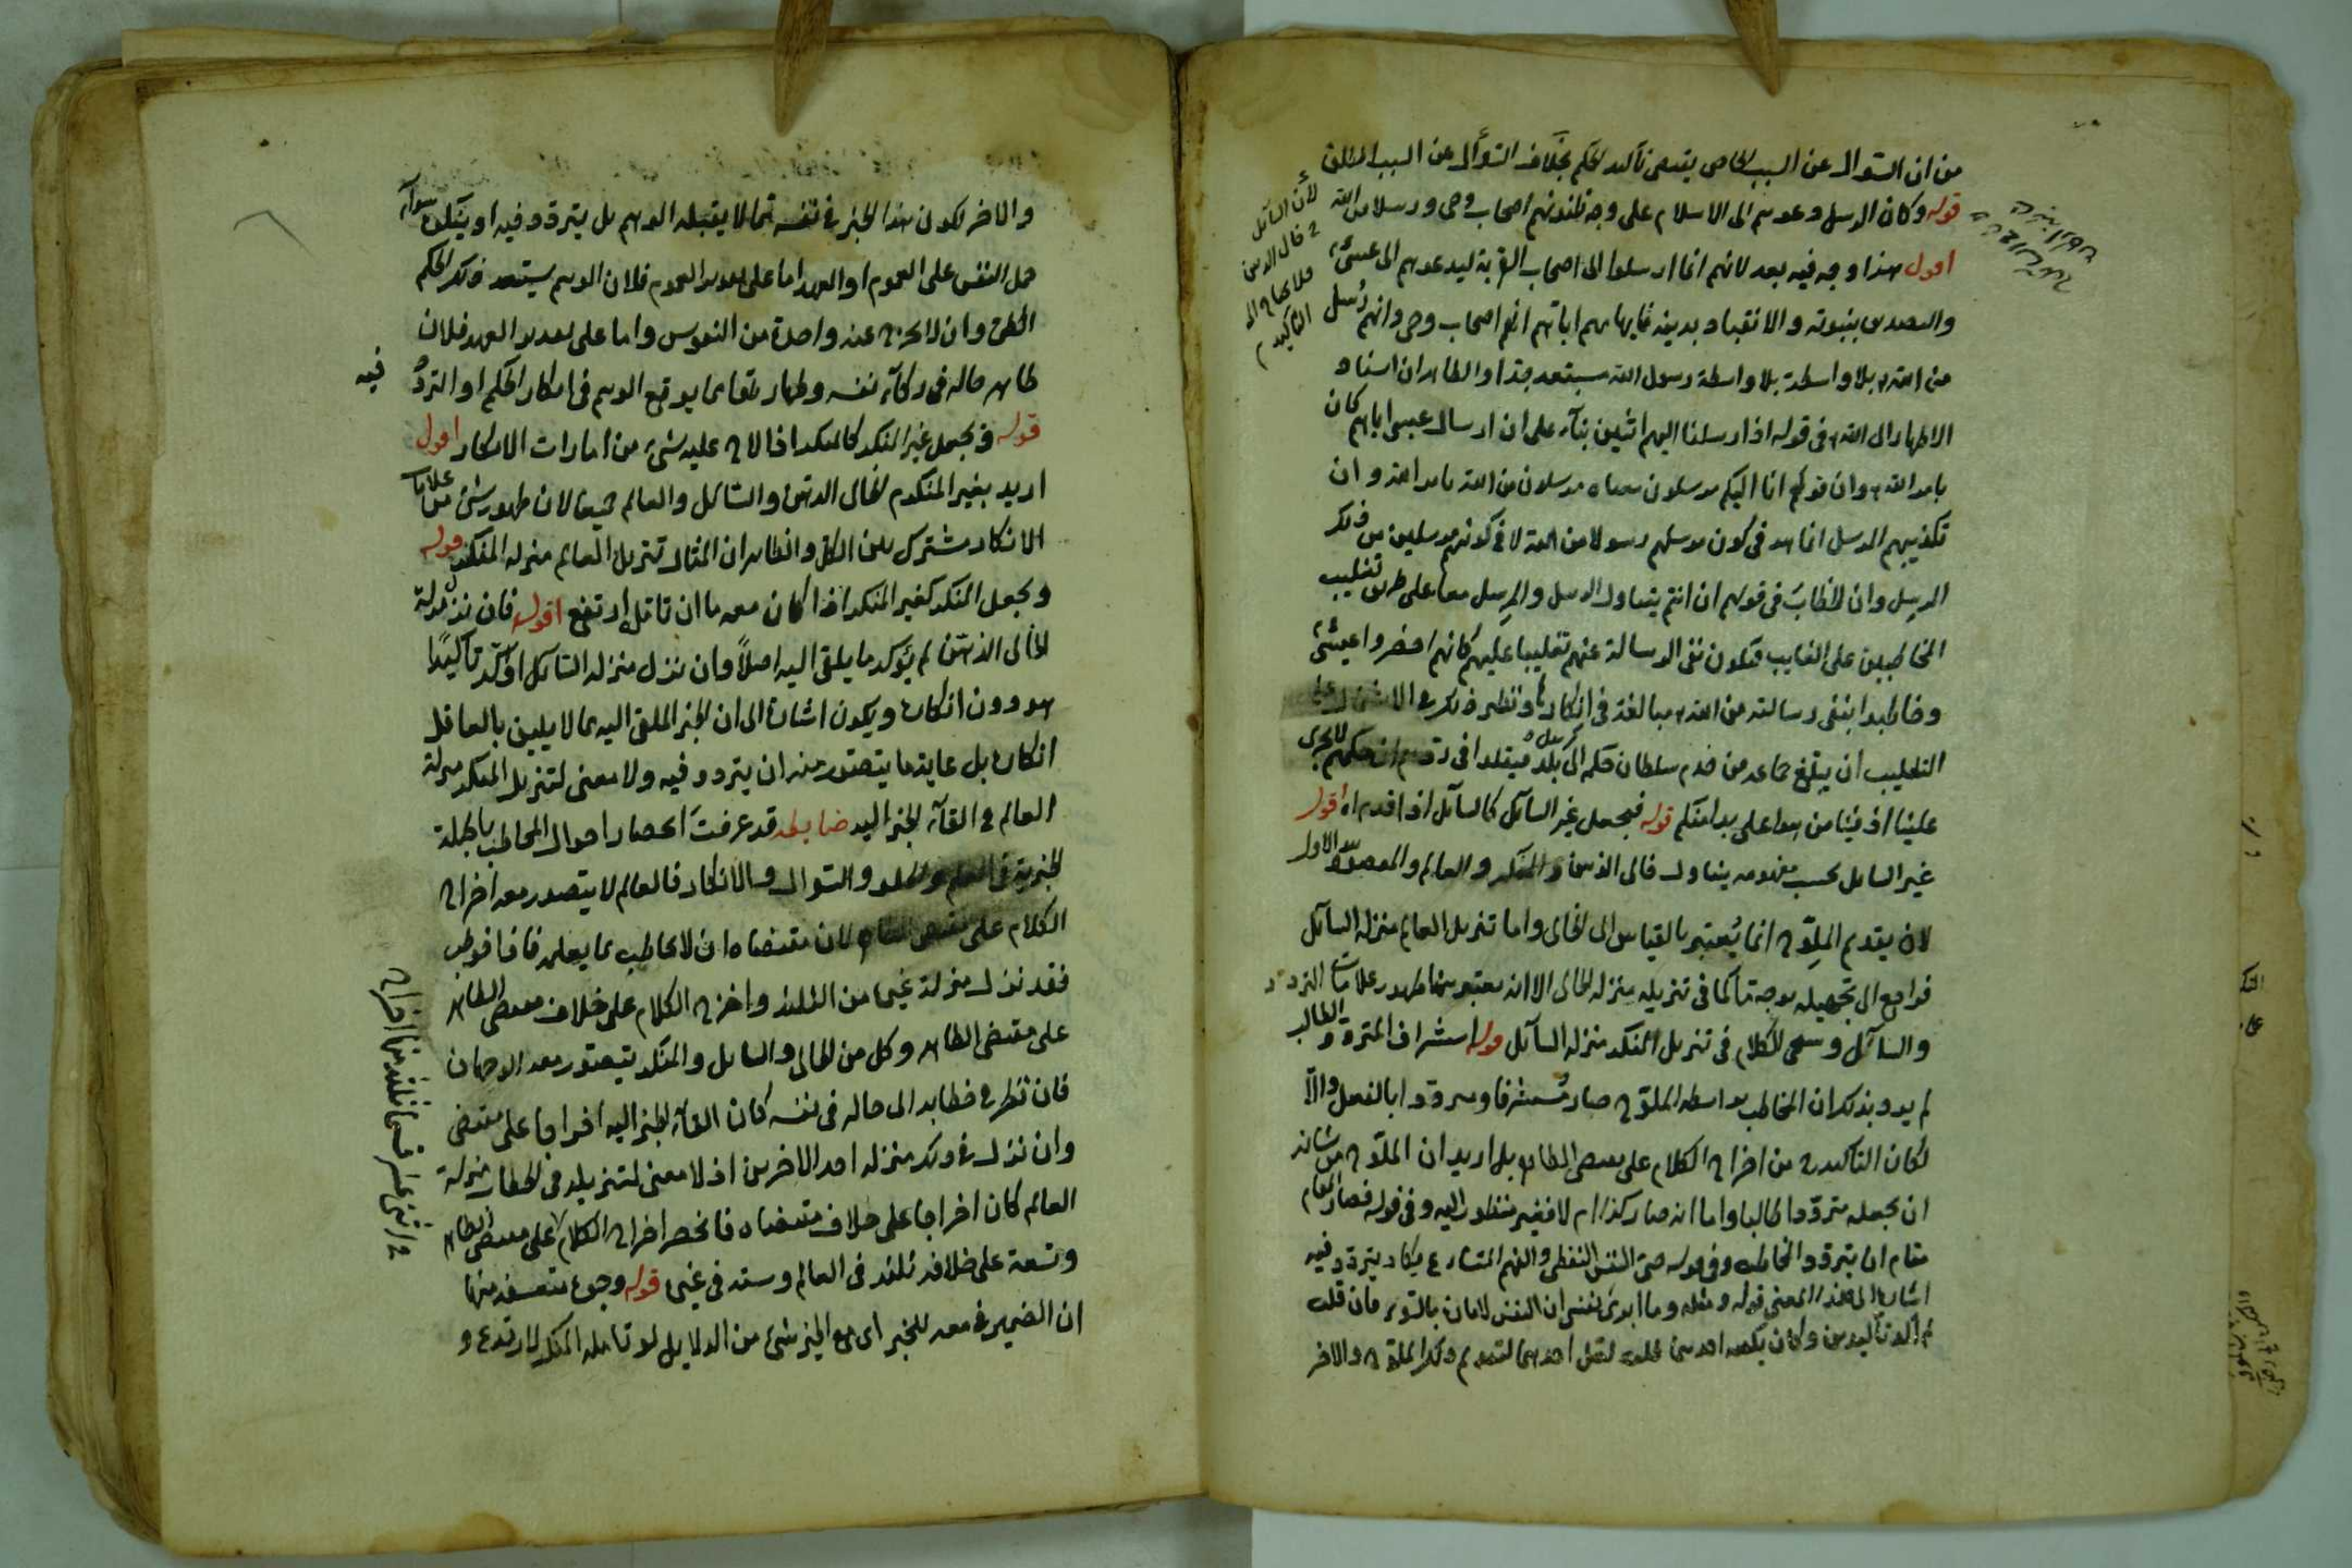 من ان السؤال عن السبب الخاص يقتضى تأكيد الحكم بخلاف السؤال عن السبب المطلق
قوله وكان الرسل دعوهم الى الاسلام على وجه ظنوهم اصحاب وحى ورسلا من الله
اقول هذا وجه فيه بعد لانهم انما ارسلوا الى اصحاب القرية ليدعوهم الى عيسى
والتصديق بنبوته والانقياد بدينه فايهامهم اياهم انهم اصحاب وحى وانهم رسل
من الله بلا واسطة بلا واسطة رسول الله مستبعد جدا والظاهر ان اسناد
الاظهار الى الله فى قوله اذ ارسلنا اليهم اثنين بناء على ان ارسال عيسى اياهم كان
بامر الله وان قولهم انا اليكم مرسلون معناه مرسلون من الله بامر الله وان
تكذيبهم الرسل انما هو فى كون مرسلهم رسولا من الله لا فى كونهم مرسلين من ذلك
الرسل وان الخطاب فى قولهم ان انتم يتناول الرسل والمرسل معا على طريق تغليب
المخاطبين على الغايب فيكون نفى الرسالة عنهم تغليبا عليهم كانهم احضروا عيسى
وخاطبوا بنفى رسالته من الله مبالغة فى انكارها ونظير ذلك فى الاشتمال على
التغليب ان يبلغ جماعة من خدم سلطان حكمه الى بلد
علينا اذ فينا من هو اعلى يدا منكم قوله فيجعل غير السائل كالسائل اذا قدم اه اقول
غير السائل بحسب مفهومه يتناول خالى الذهن والمنكر والعالم والمقصود الاول
لان يقدم الملوح انما يعتبر بالقياس الى الخالى واما تنزيل العالم منزلة السائل
فراجع الى تجهيله بوجه ما كما فى تنزيله منزلة الخالى الا انه يعتبر هنا ظهور علامات التردد
والسائل وسيجئ الكلام فى تنزيل المنكر منزلة السائل قوله استشراف المتردد الطالب
لم يرد بذلك ان المخاطب بواسطة الملوح صار مستشرفا ومترددا بالفعل والا
لكان التاكيد من اخراج الكلام على مقتضى الظاهر بل اريد ان الملوح من شانه
ان يجعله مترددا طالبا واما انه صار كذا ام لا فغير منظور اليه وفى قوله فصار المقام
مقام ان يتردد المخاطب وفى قوله حتى النفس اليقظى والفهم المتسارع يكاد يتردد فيه
اشارة الى هذا المعنى قوله ومثله وما ابرئ نفسى ان النفس لامارة بالسوء فان قلت
لم اكد تاكيدين وكان يكفيه احدهما قلت لعل احدهما لتقديم ذكر الملوح والاخر
لأن السائل
خالى الذهن
فلا يحتاج الى
التأكيد
والاخر لكون هذا الخبر فى نفسه مما لا يقبله الوهم بل يتردد فيه او ينكره سواء
حمل النفس على العموم او العهد اما على تقدير العموم فلان الوهم يستبعد ذلك الحكم
الكلى وان لا يخرج عنه واحدة من النفوس واما على تقدير العهد فلان
ظاهر حاله فى زكاء نفسه وطهارتها مما يوقع الوهم فى انكار الحكم او التردد فيه
قوله ويجعل غير المنكر كالمنكر اذا لاح عليه شئ من امارات الانكار اقول
اريد بغير المنكر خالى الذهن والسائل والعالم جميعا لان ظهور شئ من علامات
الانكار مشترك بين الكل والظاهر ان المثال تنزيل العالم منزلة المنكر قوله
ويجعل المنكر كغير المنكر اذا كان معه ما ان تامله ارتدع اقول فان نزل منزلة
خالى الذهن لم يؤكد ما يلقى اليه اصلا وان نزل منزلة السائل اكد تاكيدا
هو دون انكاره ويكون اشارة الى ان الخبر الملقى اليه مما لا يليق بالعاقل
انكاره بل غاية ما يتصور منه ان يتردد فيه ولا معنى لتنزيل المنكر منزلة
العالم فى القاء الخبر اليه ضابطه قد عرفت انحصار احوال المخاطب بالجملة
الخبرية فى العلم والخلو والسؤال والانكار فالعالم لا يتصور معه اخراج
الكلام على مقتضى الظاهر لان مقتضاه ان لا يخاطب بما يعلمه فاذا خوطب
فقد نزل منزلة غيره من الثلثة واخرج الكلام على خلاف مقتضى الظاهر
على مقتضى الظاهر وكل من الخالى والسائل والمنكر يتصور معه الوجهان
فان نظر فى خطابه الى حاله فى نفسه كان القاء الخبر اليه اخراجا على مقتضى
وان نزل فى ذلك منزلة احد الاخرين اذ لا معنى لتنزيله فى الخطاب منزلة
العالم كان اخراجا على خلاف مقتضاه فانحصر اخراج الكلام على مقتضى الظاهر
وتسعة على خلافه ثلثة فى العالم وستة فى غيره قوله وجوه متعسفة منها
ان الضمير فى معه للخبر اى مع الخبر شئ من الدلايل لو تامله المنكر لارتدع و